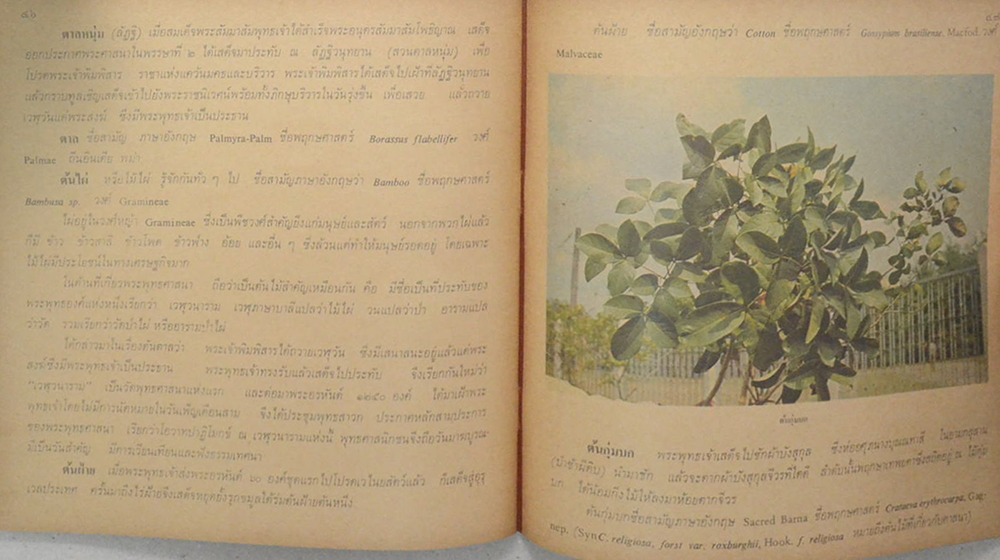 ๕๖
ตาลหนุ่ม (ลัฏฐิ) เมื่อสมเด็จพระสัมมาสัมพุทธเจ้าได้สำเร็จพระอนุตรสัมมาสัมโพธิญาณ เสด็จ
ออกประกาศพระศาสนาในพรรษาที่ ๒ ได้เสด็จมาประทับ ณ ลัฏฐิวนุทยาน (สวนตาลหนุ่ม) เพื่อ
โปรดพระเจ้าพิมพิสาร ราชาแห่งแคว้นมคธและบริวาร พระเจ้าพิมพิสารได้เสด็จไปเฝ้าที่ลัฏฐิวนุทยาน
แล้วกราบทูลเชิญเสด็จเข้าไปยังพระราชนิเวศน์พร้อมทั้งภิกษุบริวารในวันรุ่งขึ้น เพื่อเสวย แล้วถวาย
เวฬุวันแด่พระสงฆ์ ซึ่งมีพระพุทธเจ้าเป็นประธาน
ตาล ชื่อสามัญ ภาษาอังกฤษ Palmyra-Palm ชื่อพฤกษศาสตร์ Borassus flabellifer วงศ์
Palmae ถิ่นอินเดีย พม่า
ต้นไผ่ หรือไม้ไผ่ รู้จักกันทั่ว ๆ ไป ชื่อสามัญภาษาอังกฤษว่า Bamboo ชื่อพฤกษศาสตร์
Bambusa sp. วงศ์ Gramineae
ไผ่อยู่ในวงศ์หญ้า Gramineae ซึ่งเป็นพืชวงศ์สำคัญยิ่งแก่มนุษย์และสัตว์ นอกจากพวกไผ่แล้ว
ก็มี ข้าว ข้าวสาลี ข้าวโพด ข้าวฟ่าง อ้อย และอื่น ๆ ซึ่งล้วนแต่ทำให้มนุษย์รอดอยู่ โดยเฉพาะ
ไม้ไผ่มีประโยชน์ในทางเศรษฐกิจมาก
ในด้านที่เกี่ยวพระพุทธศาสนา ถือว่าเป็นต้นไม้สำคัญเหมือนกัน คือ มีชื่อเป็นที่ประทับของ
พระพุทธองค์แห่งหนึ่งเรียกว่า เวฬุวนาราม เวฬุภาษาบาลีแปลว่าไม้ไผ่ วนแปลว่าป่า อารามแปล
ว่าวัด รวมเรียกว่าวัดป่าไผ่ หรืออารามป่าไผ่
ได้กล่าวมาในเรื่องต้นตาลว่า พระเจ้าพิมพิสารได้ถวายเวฬุวัน ซึ่งมีเสนาสนะอยู่แล้วแด่พระ
สงฆ์ซึ่งมีพระพุทธเจ้าเป็นประธาน พระพุทธเจ้าทรงรับแล้วเสด็จไปประทับ จึงเรียกกันใหม่ว่า
"เวฬุวนาราม" เป็นวัดพุทธศาสนาแห่งแรก และต่อมาพระอรหันต์ ๑๒๕๐ องค์ ได้มาเฝ้าพระ
พุทธเจ้าโดยไม่มีการนัดหมายในวันเพ็ญเดือนสาม จึงได้ประชุมพุทธสาวก ประกาศหลักสามประการ
ของพระพุทธศาสนา เรียกว่าโอวาทปาฏิโมกข์ ณ เวฬุวนารามแห่งนี้ พุทธศาสนิกชนจึงถือวันมาฆบูรณะ
มีเป็นวันสำคัญ มีการเวียนเทียนและฟังธรรมเทศนา
ต้นฝ้าย เมื่อพระพุทธเจ้าส่งพระอรหันต์ ๖๐ องค์ชุดแรกไปโปรดเวไนยสัตว์แล้ว ก็เสด็จสู่อุรุ
เวลประเทศ ครั้นมาถึงไร่ฝ้ายจึงเสด็จหยุดยั้งรุกขมูลใต้ร่มต้นฝ้ายต้นหนึ่ง
ต้นฝ้าย ชื่อสามัญอังกฤษว่า Cotton ชื่อพฤกษศาสตร์ Gossypium brasiliense, Macfod. วงศ์
Malvaceae
ต้นกุ่มบก
ต้นกุ่มบก พระพุทธเจ้าเสด็จไปชักผ้าบังสุกุล ซึ่งห่อศพนางปุณณทาสี ในอามกสุสาน
(ป่าช้าผีดิบ) นำมาซัก แล้วจะตากผ้าบังสุกุลจีวรที่ใดดี ลำดับนั้นพฤกษาเทพยดาซึ่งสถิตอยู่ ณ ไม้กุ่ม
บก ได้น้อมกิ่งไม้ให้ลงมาห้อยตากจีวร
ต้นกุ่มบกชื่อสามัญภาษาอังกฤษ Sacred Barna ชื่อพฤกษศาสตร์ Crataeva erythrocarpa, Gag-
nep. (Syn C. religiosa, forst var. roxburghii, Hook. f. religiosa หมายถึงต้นไม้ที่เกี่ยวกับศาสนา)